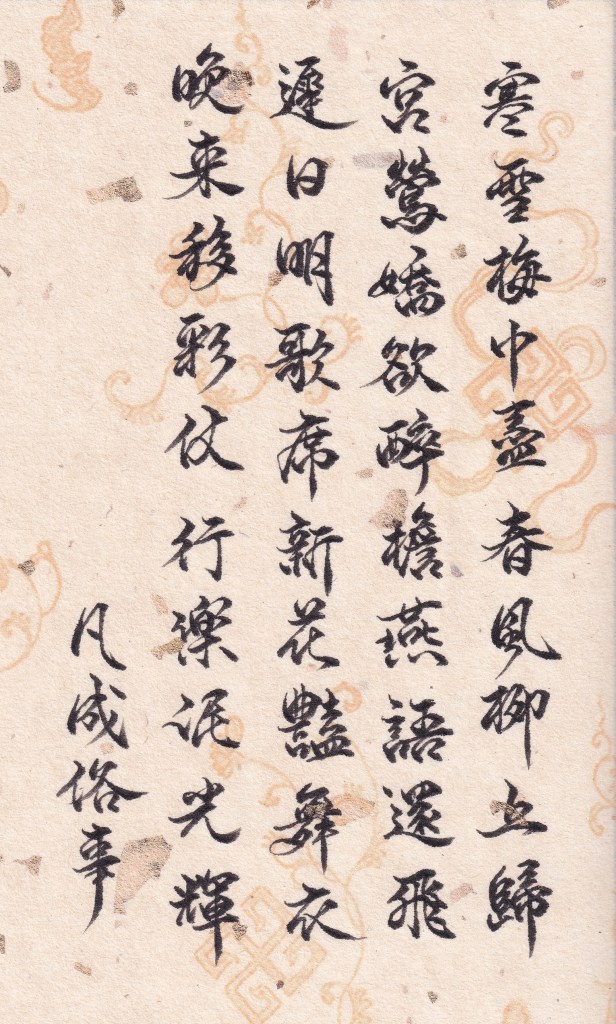 寒雪梅中盡春風柳上歸
宮鶯嬌欲醉檐燕語還飛
遲日明歌席新花豔舞衣
晚来移彩仗行樂泥光輝
凡成俗事